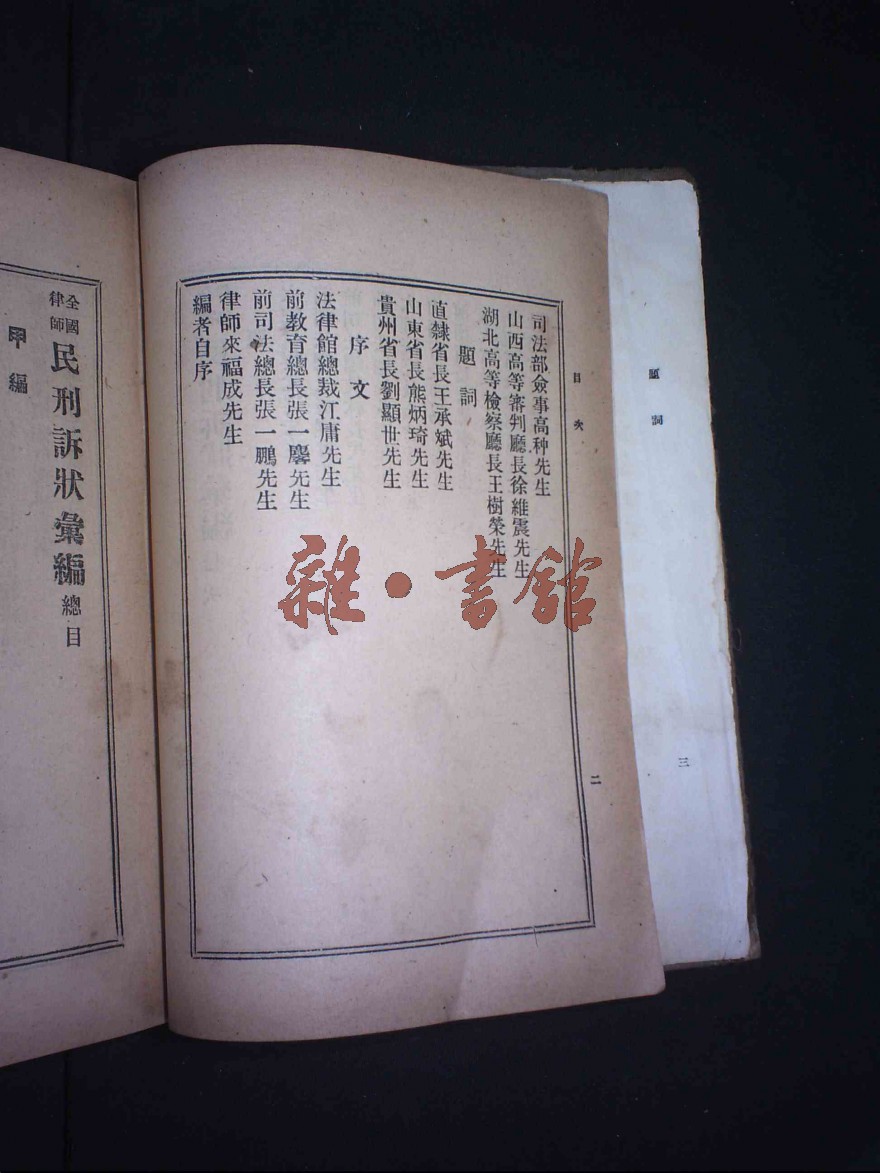 題詞
三
目次
司法部僉事高种先生
山西高等審判廳長徐維震先生
湖北高等檢察廳長王樹榮先生
題詞
直隸省長王承斌先生
山東省長熊炳琦先生
貴州省長劉顯世先生
序文
法律館總裁江庸先生
前教育總長張一麐先生
前司法總長張一鵬先生
律師來福成先生
編者自序
二
全國律師民刑訴狀彙編總目
甲編
雜·書館